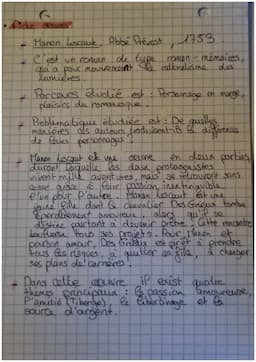 Fiche oeuvre
- Manon Lescaut, Abbé Prévost, 1753
- C'est un roman de type roman-mémoires,
qui a pour mouvement le des
lumières.
- Parcours étudié est : Personnage en marge,
plaisirs du romanesque.
- Problématique étudiée est : De quelles
manières les auteurs la différence
de leurs personnages
- Manon Lescaut est une oeuvre en deux parties
durant lesquelles les deux protagonistes
vivent mille aventures, mais se retrouvent sans
cesse grâce à leur passion
l'un pour l'autre. Manon Lescaut est une
jeune fille dont le chevalier Des Grieux tombe
éperdument amoureux, alors qu'il se
destine partant à devenir prêtre. Cette rencontre
bouleverse tous ses projets. Pour Manon et
par amour, Des Grieux est prêt à prendre
tous les risques, à quitter sa famille, à changer
ses plans de carrière!
- Dans cette oeuvre il exist quatre
thèmes principaux : la passion amoureuse,
l'amitié (Tiberge), le libertinage et la
source d'argent.